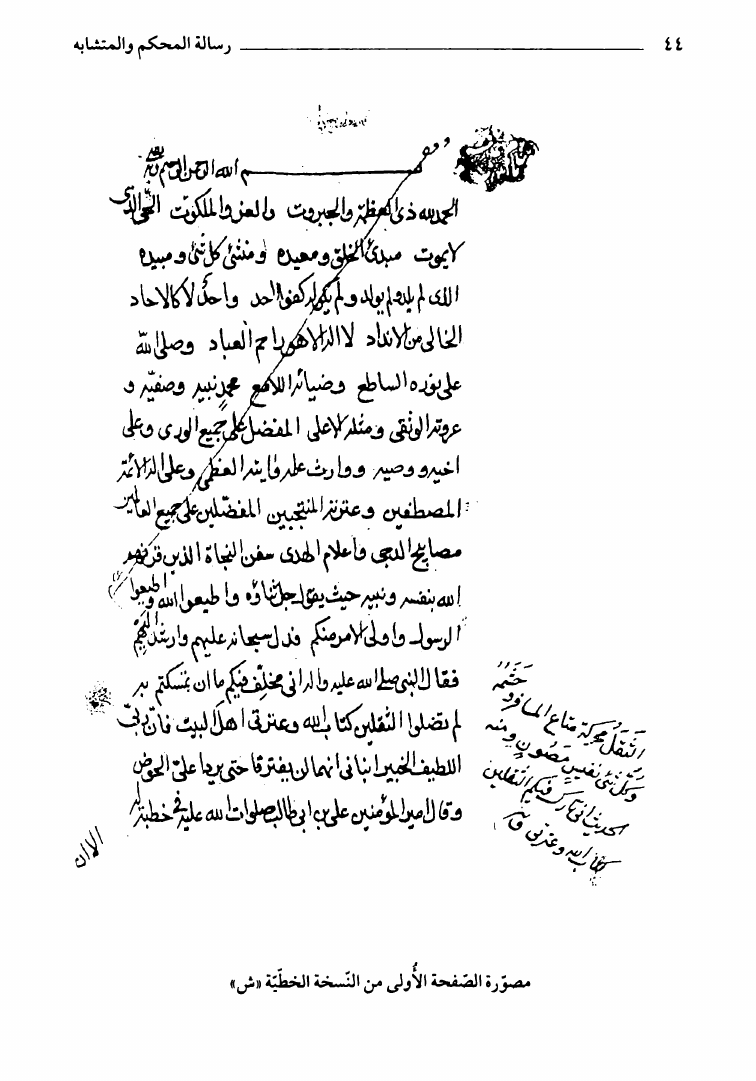 ٤٤ رسالة المحكم والمتشابه
بسم الله الرحمن الرحيم
الحمد لله ذى العظمة والجبروت والعز والملكوت الحى الذى
لا يموت مبدئ الخلق ومعيده ومنشئ كل شئ ومبيده
الذى لم يلد ولم يولد ولم يكن له كفوا احد واحد لا كالاحاد
الخالى من الانداد لا اله الا هو راحم العباد وصلى الله
على نوره الساطع وضيائه اللامع محمد نبيه وصفيه و
عروته الوثقى ومثله الاعلى المفضل على جميع الورى وعلى
اخيه ووصيه ووارث علمه وايته العظمى وعلى اله الائمة
المصطفين وعترته المنتجبين المفضلين على جميع العالمين
مصابيح الدجى واعلام الهدى سفن النجاة الذين قرنهم
الله بنفسه ونبيه حيث يقول جل ثناؤه واطيعوا الله واطيعوا
الرسول واولى الامر منكم فدل سبحانه عليهم وارشد اليهم
فقال النبى صلى الله عليه واله انى مخلف فيكم ما ان تمسكتم به
لم تضلوا الثقلين كتاب الله وعترتى اهل البيت فان ربى
اللطيف الخبير انبانى انهما لن يفترقا حتى يردا على الحوض
وقال امير المؤمنين على بن ابى طالب صلوات الله عليه فى خطبة له
الا ان
الثقل محركة متاع المسافر و
وكل شئ نفيس مصون ومنه
الحديث انى تارك فيكم الثقلين
كتاب الله وعترتى
مصوّرة الصّفحة الأُولى من النّسخة الخطّيّة «ش»